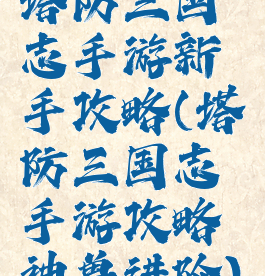 塔防三国
志手游新
手攻略(塔
防三国志
手游攻略
神兽进阶)